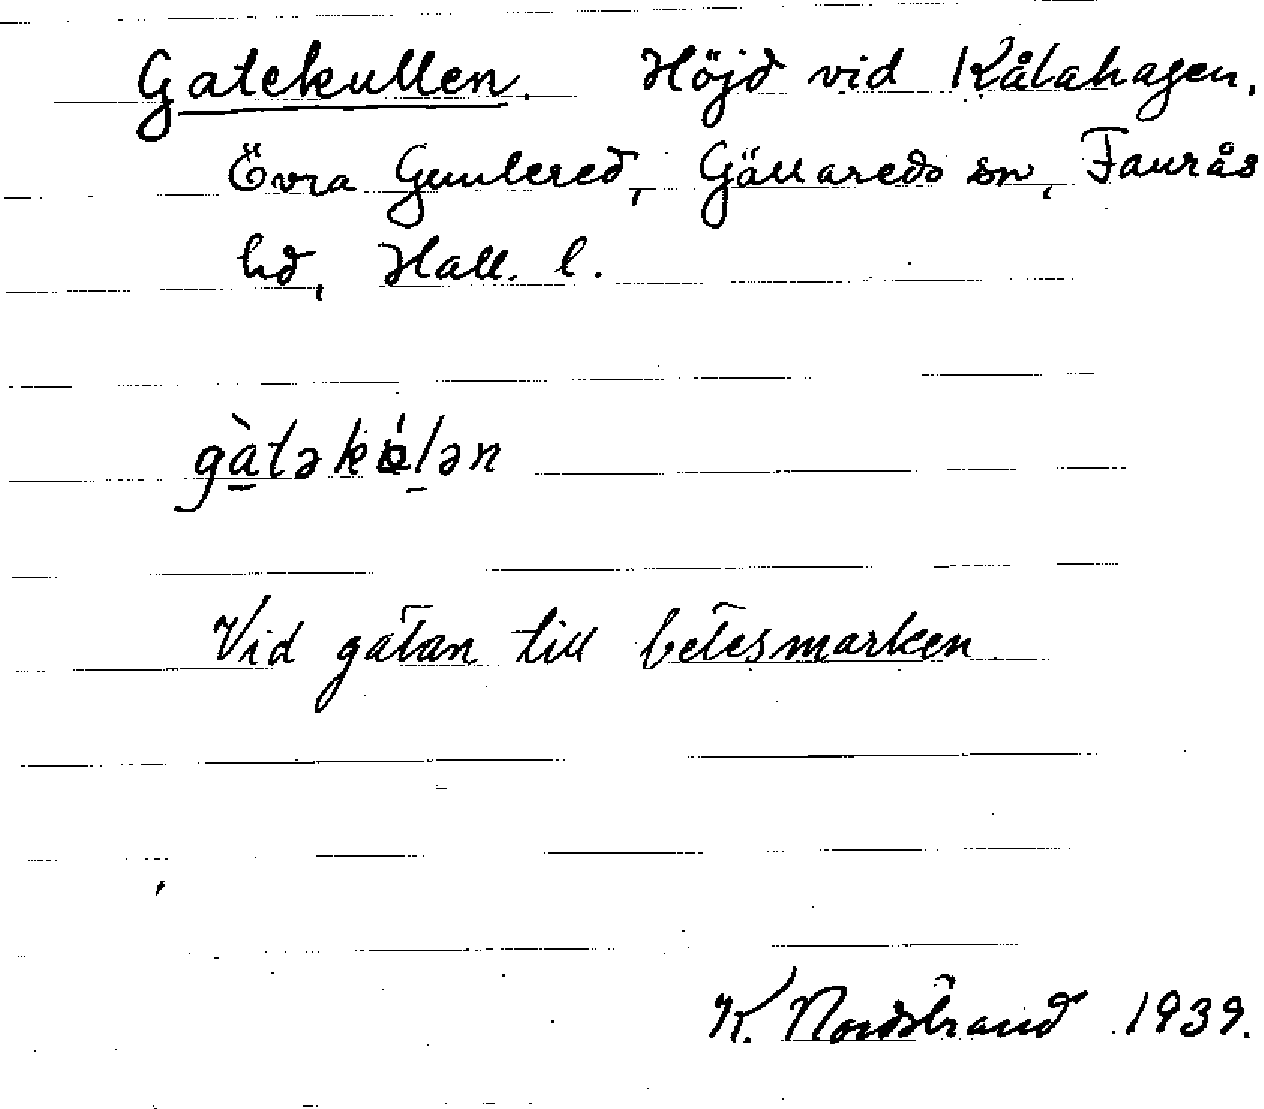 Gatekullen. Höjd vid Kålahagen,
Övra Gunnered, Gällareds sn, Faurås
hd, Hall. l.
gàtəkólən
Vid gatan till betesmarken
K. Nordstrand 1939.